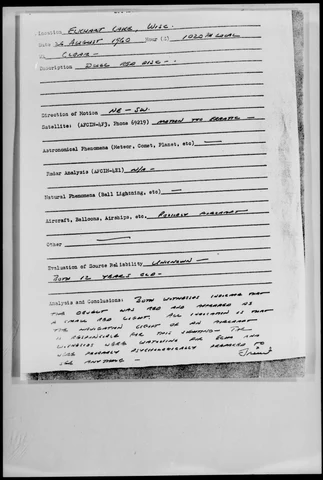 Location ELKHART LAKE, WISC.
Date 26 AUGUST 1960 Hour (Z) 1020 PM LOCAL
CLEAR -
Description DULL RED DISC -
Direction of Motion NE - SW.
Satellite: (AFCIN-4F3, Phone 69219) MOTION TOO ERRATIC -
Astronomical Phenomena (Meteor, Comet, Planet, etc) —
Radar Analysis (AFCIN-4E1) N/A -
Natural Phenomena (Ball Lightning, etc) —
Aircraft, Balloons, Airships, etc. POSSIBLY AIRCRAFT
Other —
Evaluation of Source Reliability UNKNOWN -
BOTH 12 YEARS OLD -
Analysis and Conclusions: BOTH WITNESSES INDICATE THAT
THE OBJECT WAS RED AND APPEARED AS
A SMALL RED LIGHT. ALL INDICATION IS THAT
THE NAVIGATION LIGHT OF AN AIRCRAFT
IS RESPONSIBLE FOR THIS SIGHTING - THE
WITNESSES WERE WATCHING FOR ECHO AND
WERE PROBABLY PSYCHOLOGICALLY PREPARED TO
SEE ANYTHING -